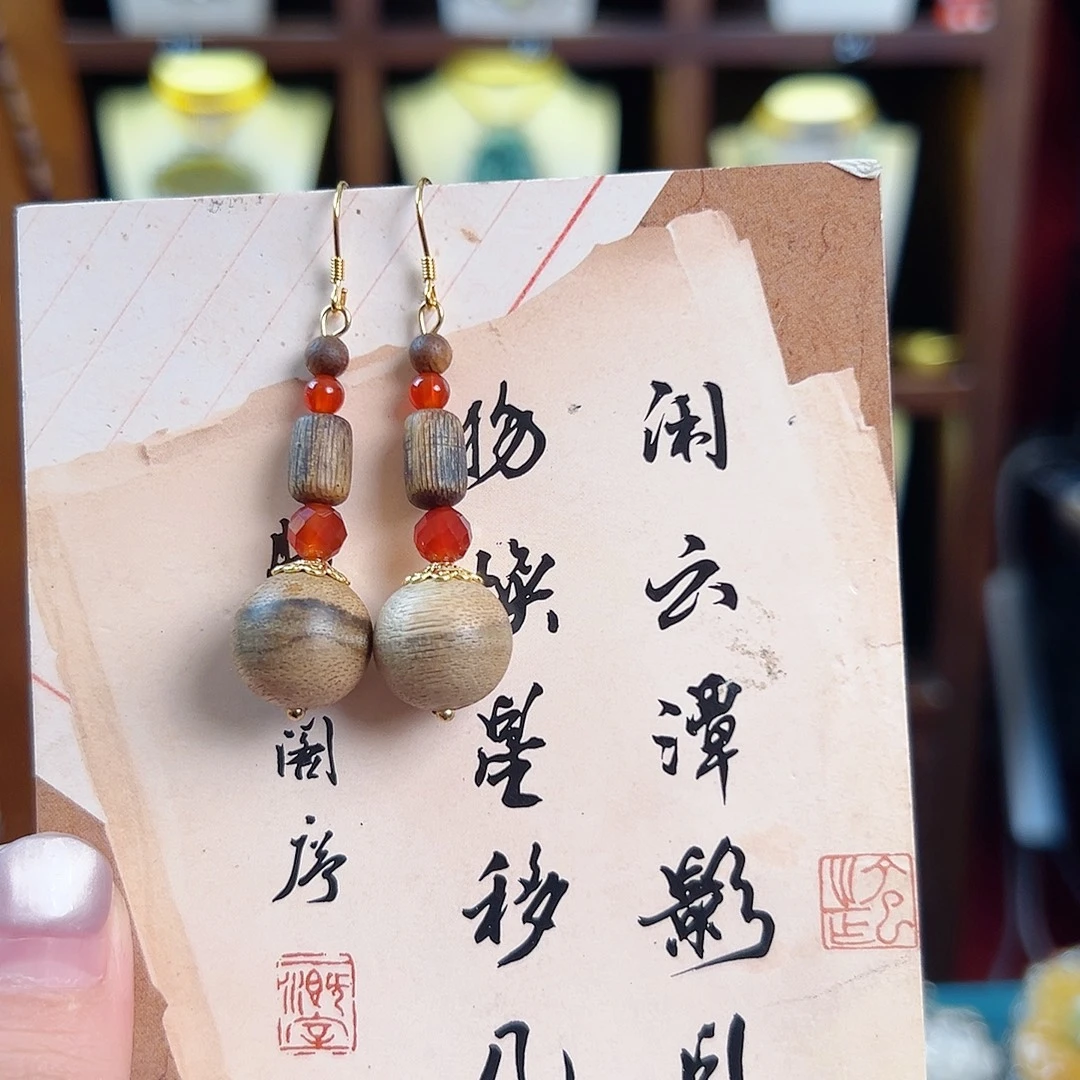 闲云潭影
物换星移几
阁序